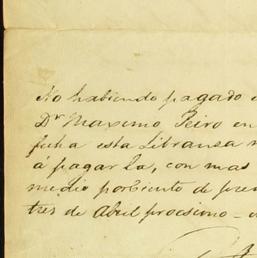 No habiendo pagado
Dn Maximo Peiro en
fecha esta Libransa
á pagar la, con mas
medio porbiento de
tres de Abril procsimo